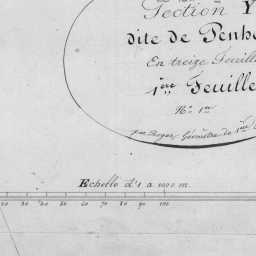 Section Y
dite de Penh
En treize Feuill
1ère Feuille
No. 1er
par Roger, Géomètre de 1ère
Echelle d'1 a 1000 m.
10 20 30 40 50 60 70 80 90 100